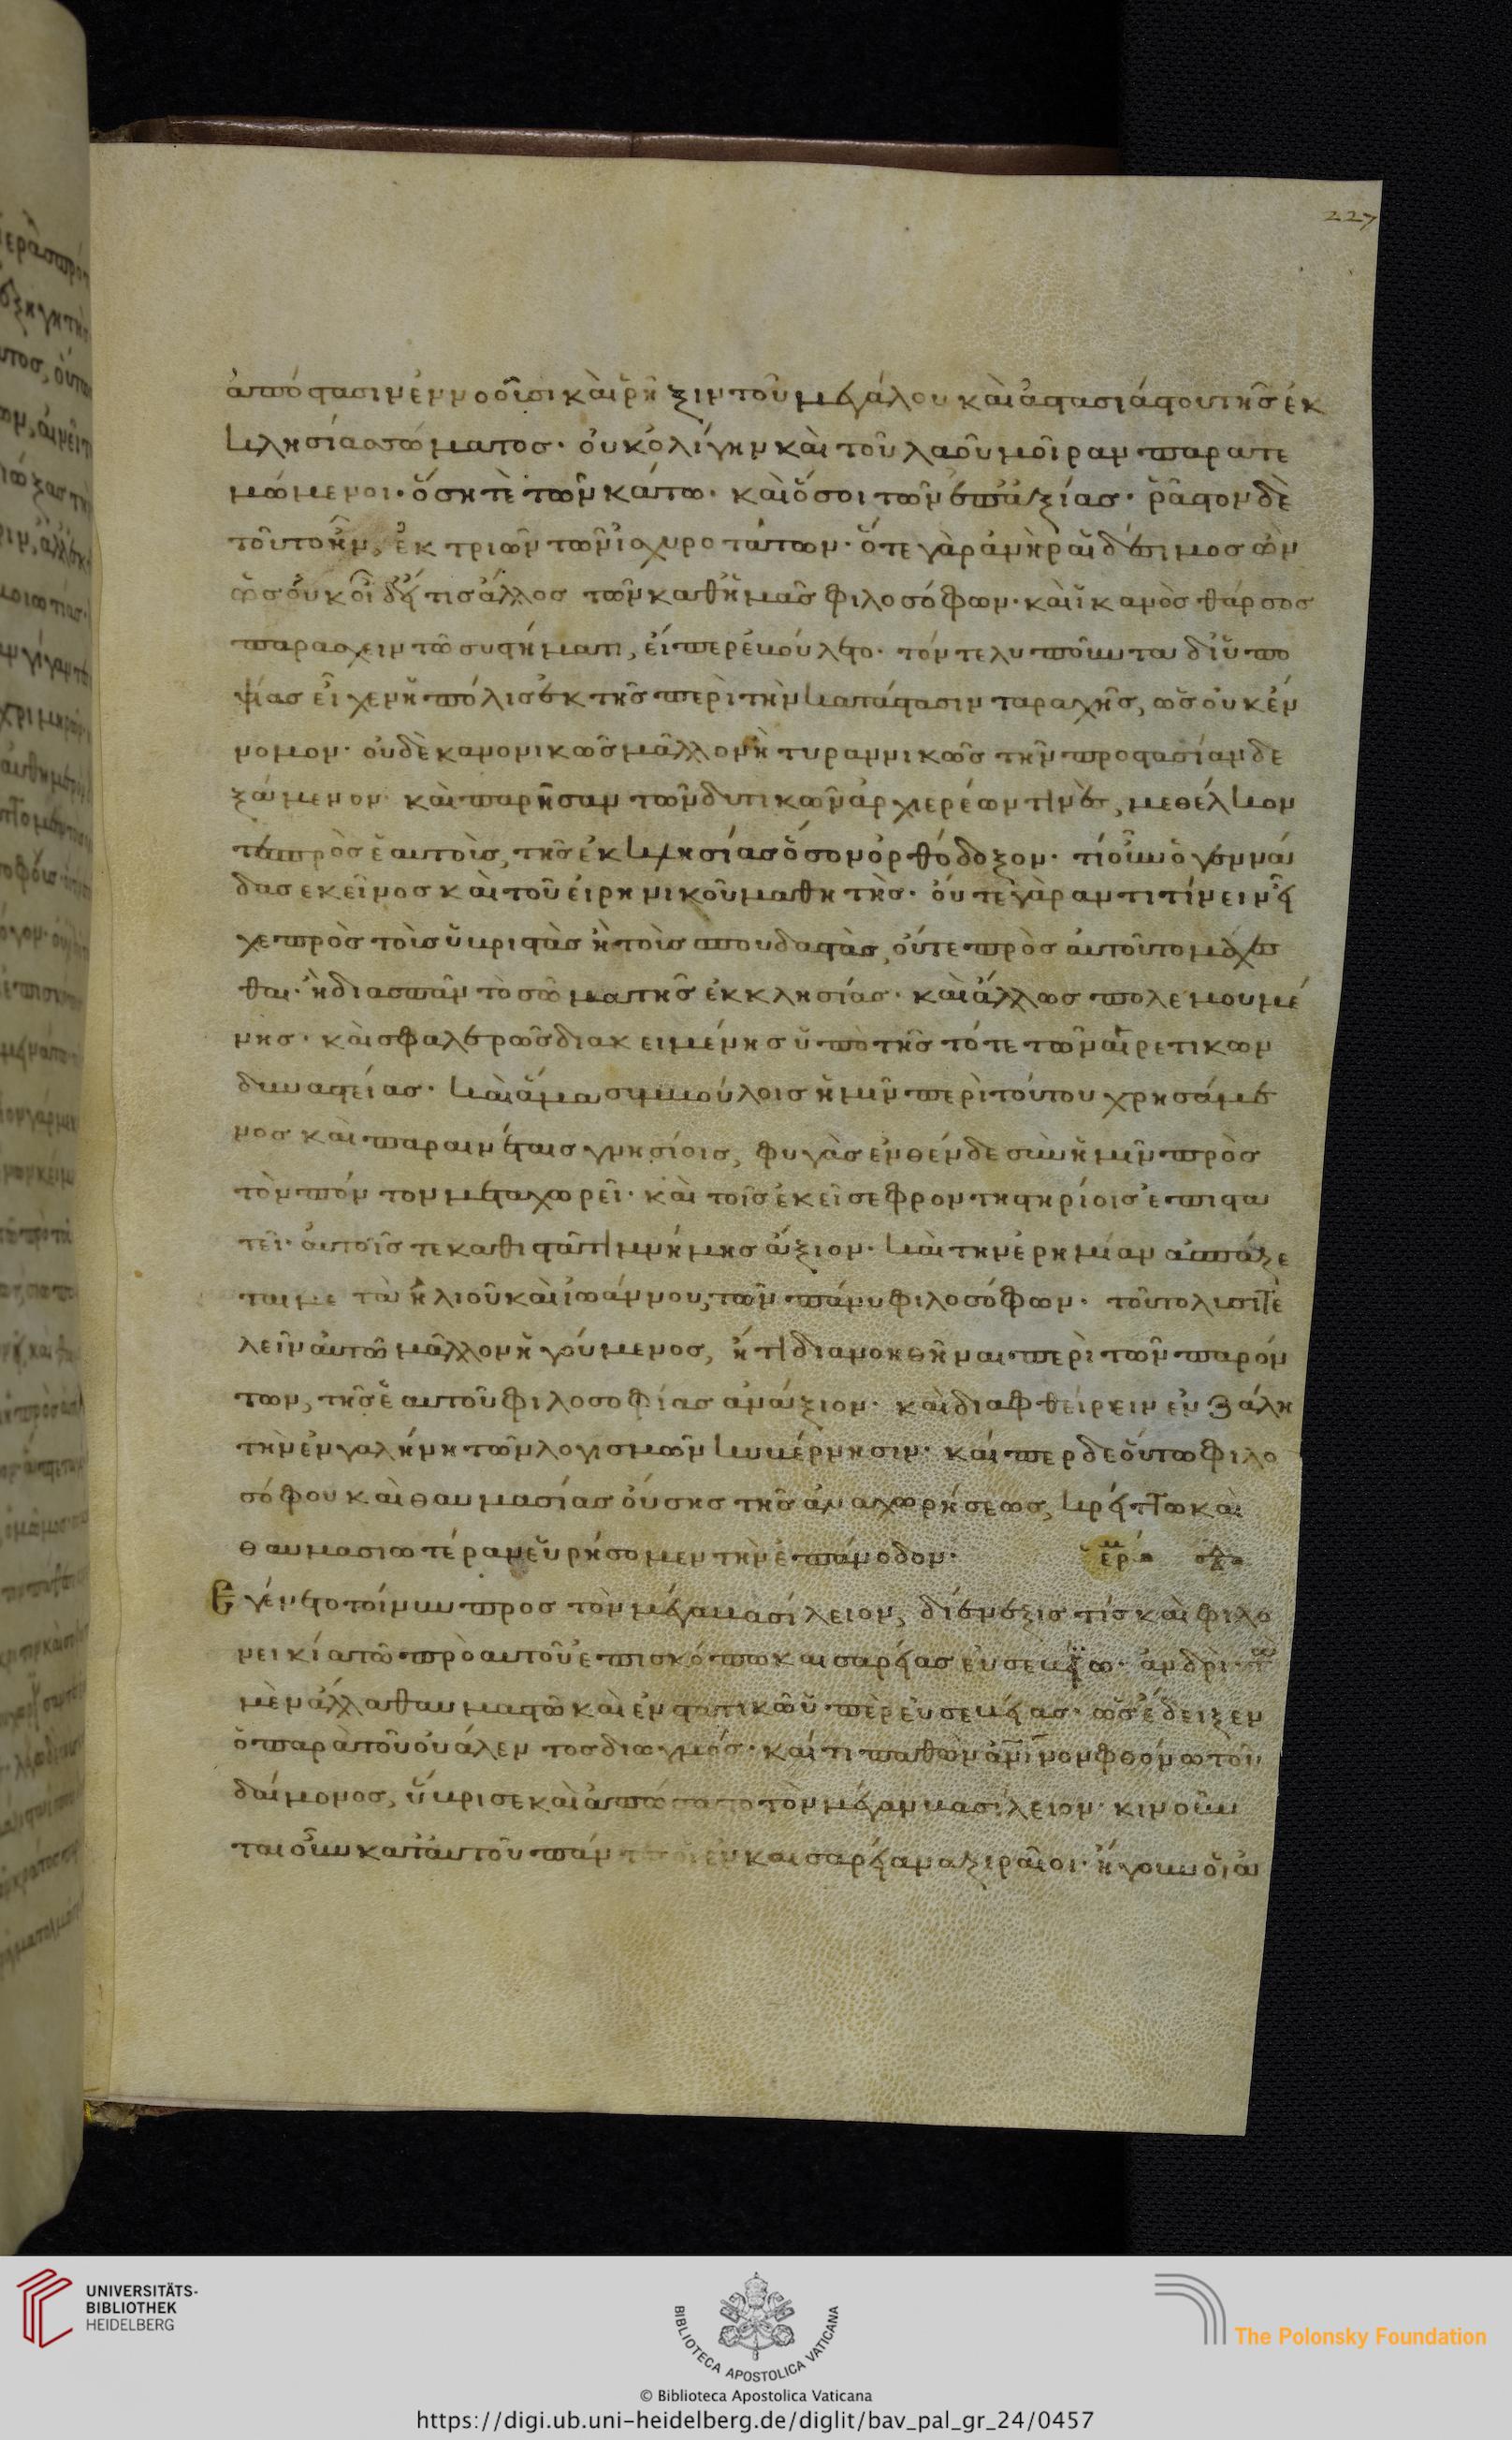 227
ἀπόστασιν ἐννοοῦσι καὶ ῥῆξιν τοῦ μεγάλου καὶ ἀστασιάστου τῆς ἐκ
κλησίας σώματος· οὐκ ὀλίγην καὶ τοῦ λαοῦ μοῖραν παρατε
μώμενοι· ὅση τὲ τῶν κάτω· καὶ ὅσοι τῶν ἐπ' ἀξίας· ῥᾶστον δὲ
τοῦτο ἦν, ἐκ τριῶν τῶν ἰσχυροτάτων· ὅτε γὰρ ἀνὴρ αἰδέσιμος ὢν
ὡς οὐκ οἶδ' εἴ τις ἄλλος τῶν καθ' ἡμᾶς φιλοσόφων· καὶ ἱκανὸς θάρσος
παρασχεῖν τῶ συστήματι, εἴπερ ἐβούλετο· τόν τε λυποῦντα δι' ὑπο
ψίας εἶχεν ἡ πόλις ἐκ τῆς περὶ τὴν κατάστασιν ταραχῆς, ὡς οὐκ ἔν
νομον· οὐδὲ κανονικῶς μᾶλλον ἢ τυραννικῶς τὴν προστασίαν δε
ξάμενον· καὶ παρῆσαν τῶν δυτικῶν ἀρχιερέων τινὲς, μεθέλκον
τες πρὸς ἑαυτοὺς, τῆς ἐκκλησίας ὅσον ὀρθόδοξον· τί οὖν ὁ γεννά
δας ἐκεῖνος καὶ τοῦ εἰρηνικοῦ μαθητής· οὔτε γὰρ ἀντιτείνειν εἶ
χε πρὸς τοὺς ὑβριστὰς ἢ τοὺς σπουδαστὰς, οὔτε πρὸς αὐτοῦ τὸ μάχεσ
θαι· ἢ διασπᾶν τὸ σῶμα τῆς ἐκκλησίας· καὶ ἄλλως πολεμουμέ
νης· καὶ σφαλερῶς διακειμένης ὑπὸ τῆς τότε τῶν αἱρετικῶν
δυναστείας· καὶ ἅμα συμβούλοις ἡμῖν περὶ τούτου χρησάμε
νος καὶ παραινέταις γνησίοις, φυγὰς ἐνθένδε σὺν ἡμῖν πρὸς
τὸν πόντον μεταχωρεῖ· καὶ τοῖς ἐκεῖσε φροντιστηρίοις ἐπιστα
τεῖ· αὐτοῖς τε καθιστᾶ τι μνήμης ἄξιον· καὶ τὴν ἐρημίαν ἀσπάζε
ται με τὰ ἡλιοῦ καὶ ἰωάννου, τῶν πάνυ φιλοσόφων· τοῦτο λυσιτε
λεῖν αὐτῶ μᾶλλον ἡγούμενος, ἤ τι διανοηθῆναι περὶ τῶν παρόν
των, τῆς ἑαυτοῦ φιλοσοφίας ἀνάξιον· καὶ διαφθείρειν ἐν ζάλη
τὴν ἐν γαλήνη τῶν λογισμῶν κυβέρνησιν· καίπερ δὲ οὕτω φιλο
σόφου καὶ θαυμασίας οὔσης τῆς ἀναχωρήσεως, κρείττω καὶ
θαυμασιωτέραν εὑρήσομεν τὴν ἐπάνοδον·
Ἐγένετο τοίνυν προς τὸν μέγαν βασίλειον, διένεξις τίς καὶ φιλο
νεικία τῶ πρὸ αὐτοῦ ἐπισκόπω καισαρείας εὐσεβίω· ἀνδρὶ τὰ
μὲν ἄλλα θαυμαστῶ καὶ ἐνστατικῶ ὑπὲρ εὐσεβείας· ὡς ἔδειξεν
ὁ παρὰ τοῦ οὐάλεντος διωγμός· καί τι παθὼν ἀνινον φθόνω τοῦ
δαίμονος, ὕβρισε καὶ ἀπώσατο τὸν μέγαν βασίλειον· κινοῦν
ται οὖν κατ' αὐτοῦ πάντες οἱ ἐν καισαρεία ναζιραῖοι· ἤγουν οἱ ἀ
UNIVERSITÄTS-
BIBLIOTHEK
HEIDELBERG
BIBLIOTECA APOSTOLICA VATICANA
© Biblioteca Apostolica Vaticana
The Polonsky Foundation
https://digi.ub.uni-heidelberg.de/diglit/bav_pal_gr_24/0457